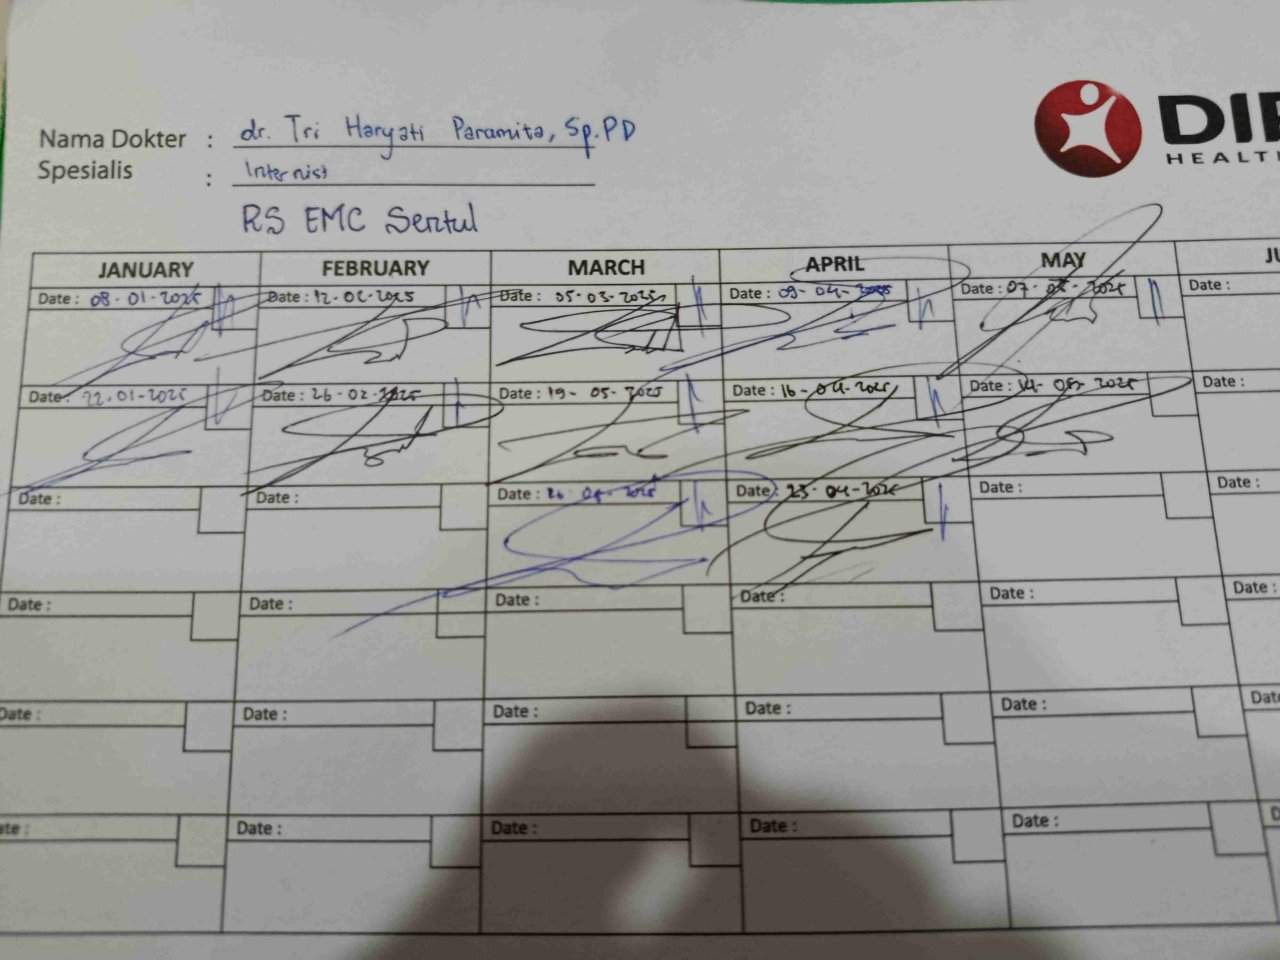 Nama Dokter : dr. Tri Haryati Paramita, Sp.PD
Spesialis : Internist
RS EMC Sentul
DIE
HEALTH
JANUARY FEBRUARY MARCH APRIL MAY JU
Date : 08-01-2025 Date : 12-02-2025 Date : 05-03-2025 Date : 09-04-2025 Date : 07-05-2025 Date :
Date : 22-01-2025 Date : 26-02-2025 Date : 19-03-2025 Date : 16-04-2025 Date : 14-05-2025 Date :
Date : Date : Date : Date : 23-04-2025 Date : Date :
Date : Date : Date : Date : Date : Date :
Date : Date : Date : Date : Date : Dat
ate : Date : Date : Date : Date : D